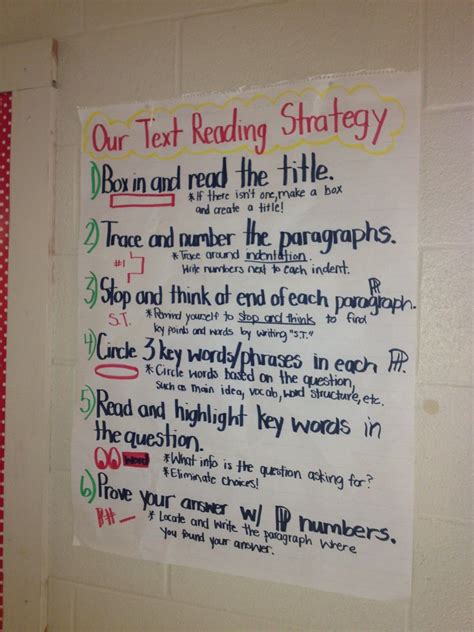 Our Text Reading Strategy
1) Box in and read the title.
*If there isn't one, make a box
and create a title!
2) Trace and number the paragraphs.
#1
*Trace around indentation.
Write numbers next to each indent.
3) Stop and think at end of each paragraph.
S.T.
*Remind yourself to stop and think to find
key points and words by writing "S.T."
4) Circle 3 key words/phrases in each PP.
*Circle words based on the question,
such as main idea, vocab, word structure, etc.
5) Read and highlight key words in
the question.
word
*What info is the question asking for?
*Eliminate choices!
6) Prove your answer w/ PP numbers.
P#_
*Locate and write the paragraph where
you found your answer.